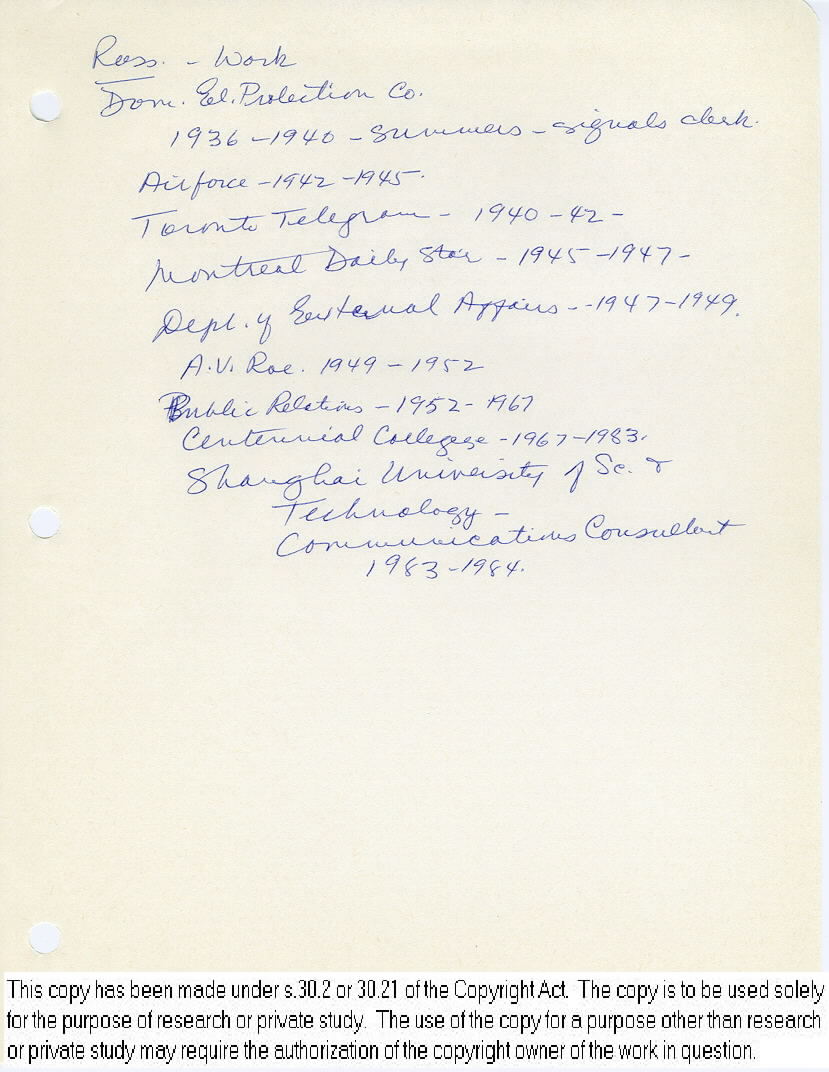 Ross. - Work
Dom. El. Protection Co.
1936 - 1940 - Summers - signals clerk.
Airforce - 1942 - 1945.
Toronto Telegram - 1940 - 42 -
Montreal Daily Star - 1945 - 1947 -
Dept. of External Affairs - - 1947 - 1949.
A.V. Roe. 1949 - 1952
Public Relations - 1952 - 1967
Centennial College - 1967 - 1983.
Shanghai University of Sc. &
Technology -
Communications Consultant
1983 - 1984.
This copy has been made under s.30.2 or 30.21 of the Copyright Act. The copy is to be used solely
for the purpose of research or private study. The use of the copy for a purpose other than research
or private study may require the authorization of the copyright owner of the work in question.